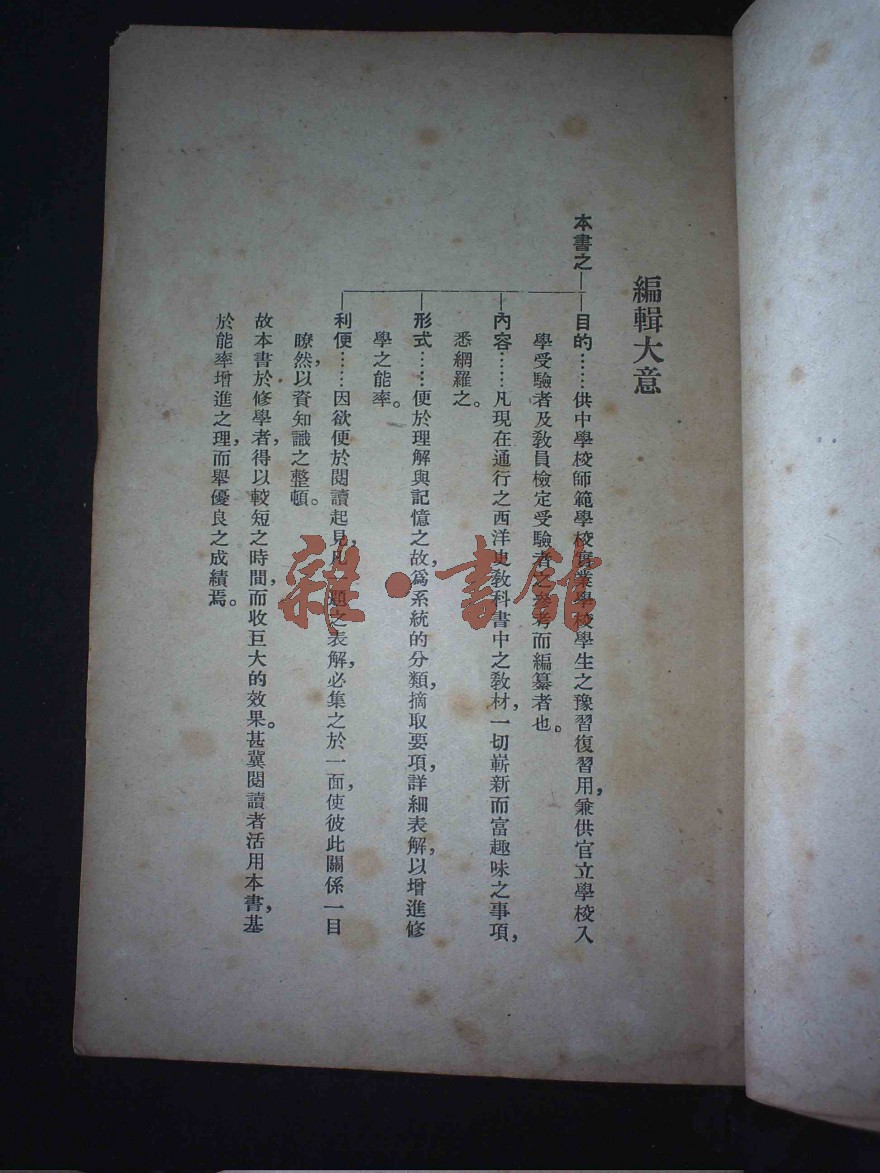 編輯大意
本書之
目的……供中學校師範學校實業學校學生之豫習復習用，兼供官立學校入
學受驗者及敎員檢定受驗者之參考而編纂者也。
內容……凡現在通行之西洋史敎科書中之敎材，一切嶄新而富趣味之事項，
悉網羅之。
形式……便於理解與記憶之故，爲系統的分類，摘取要項，詳細表解，以增進修
學之能率。
利便……因欲便於閱讀起見，凡一題之表解，必集之於一面，使彼此關係一目
瞭然，以資知識之整頓。
故本書於修學者，得以較短之時間，而收巨大的效果。甚冀閱讀者活用本書，基
於能率增進之理，而舉優良之成績焉。
雜·書館